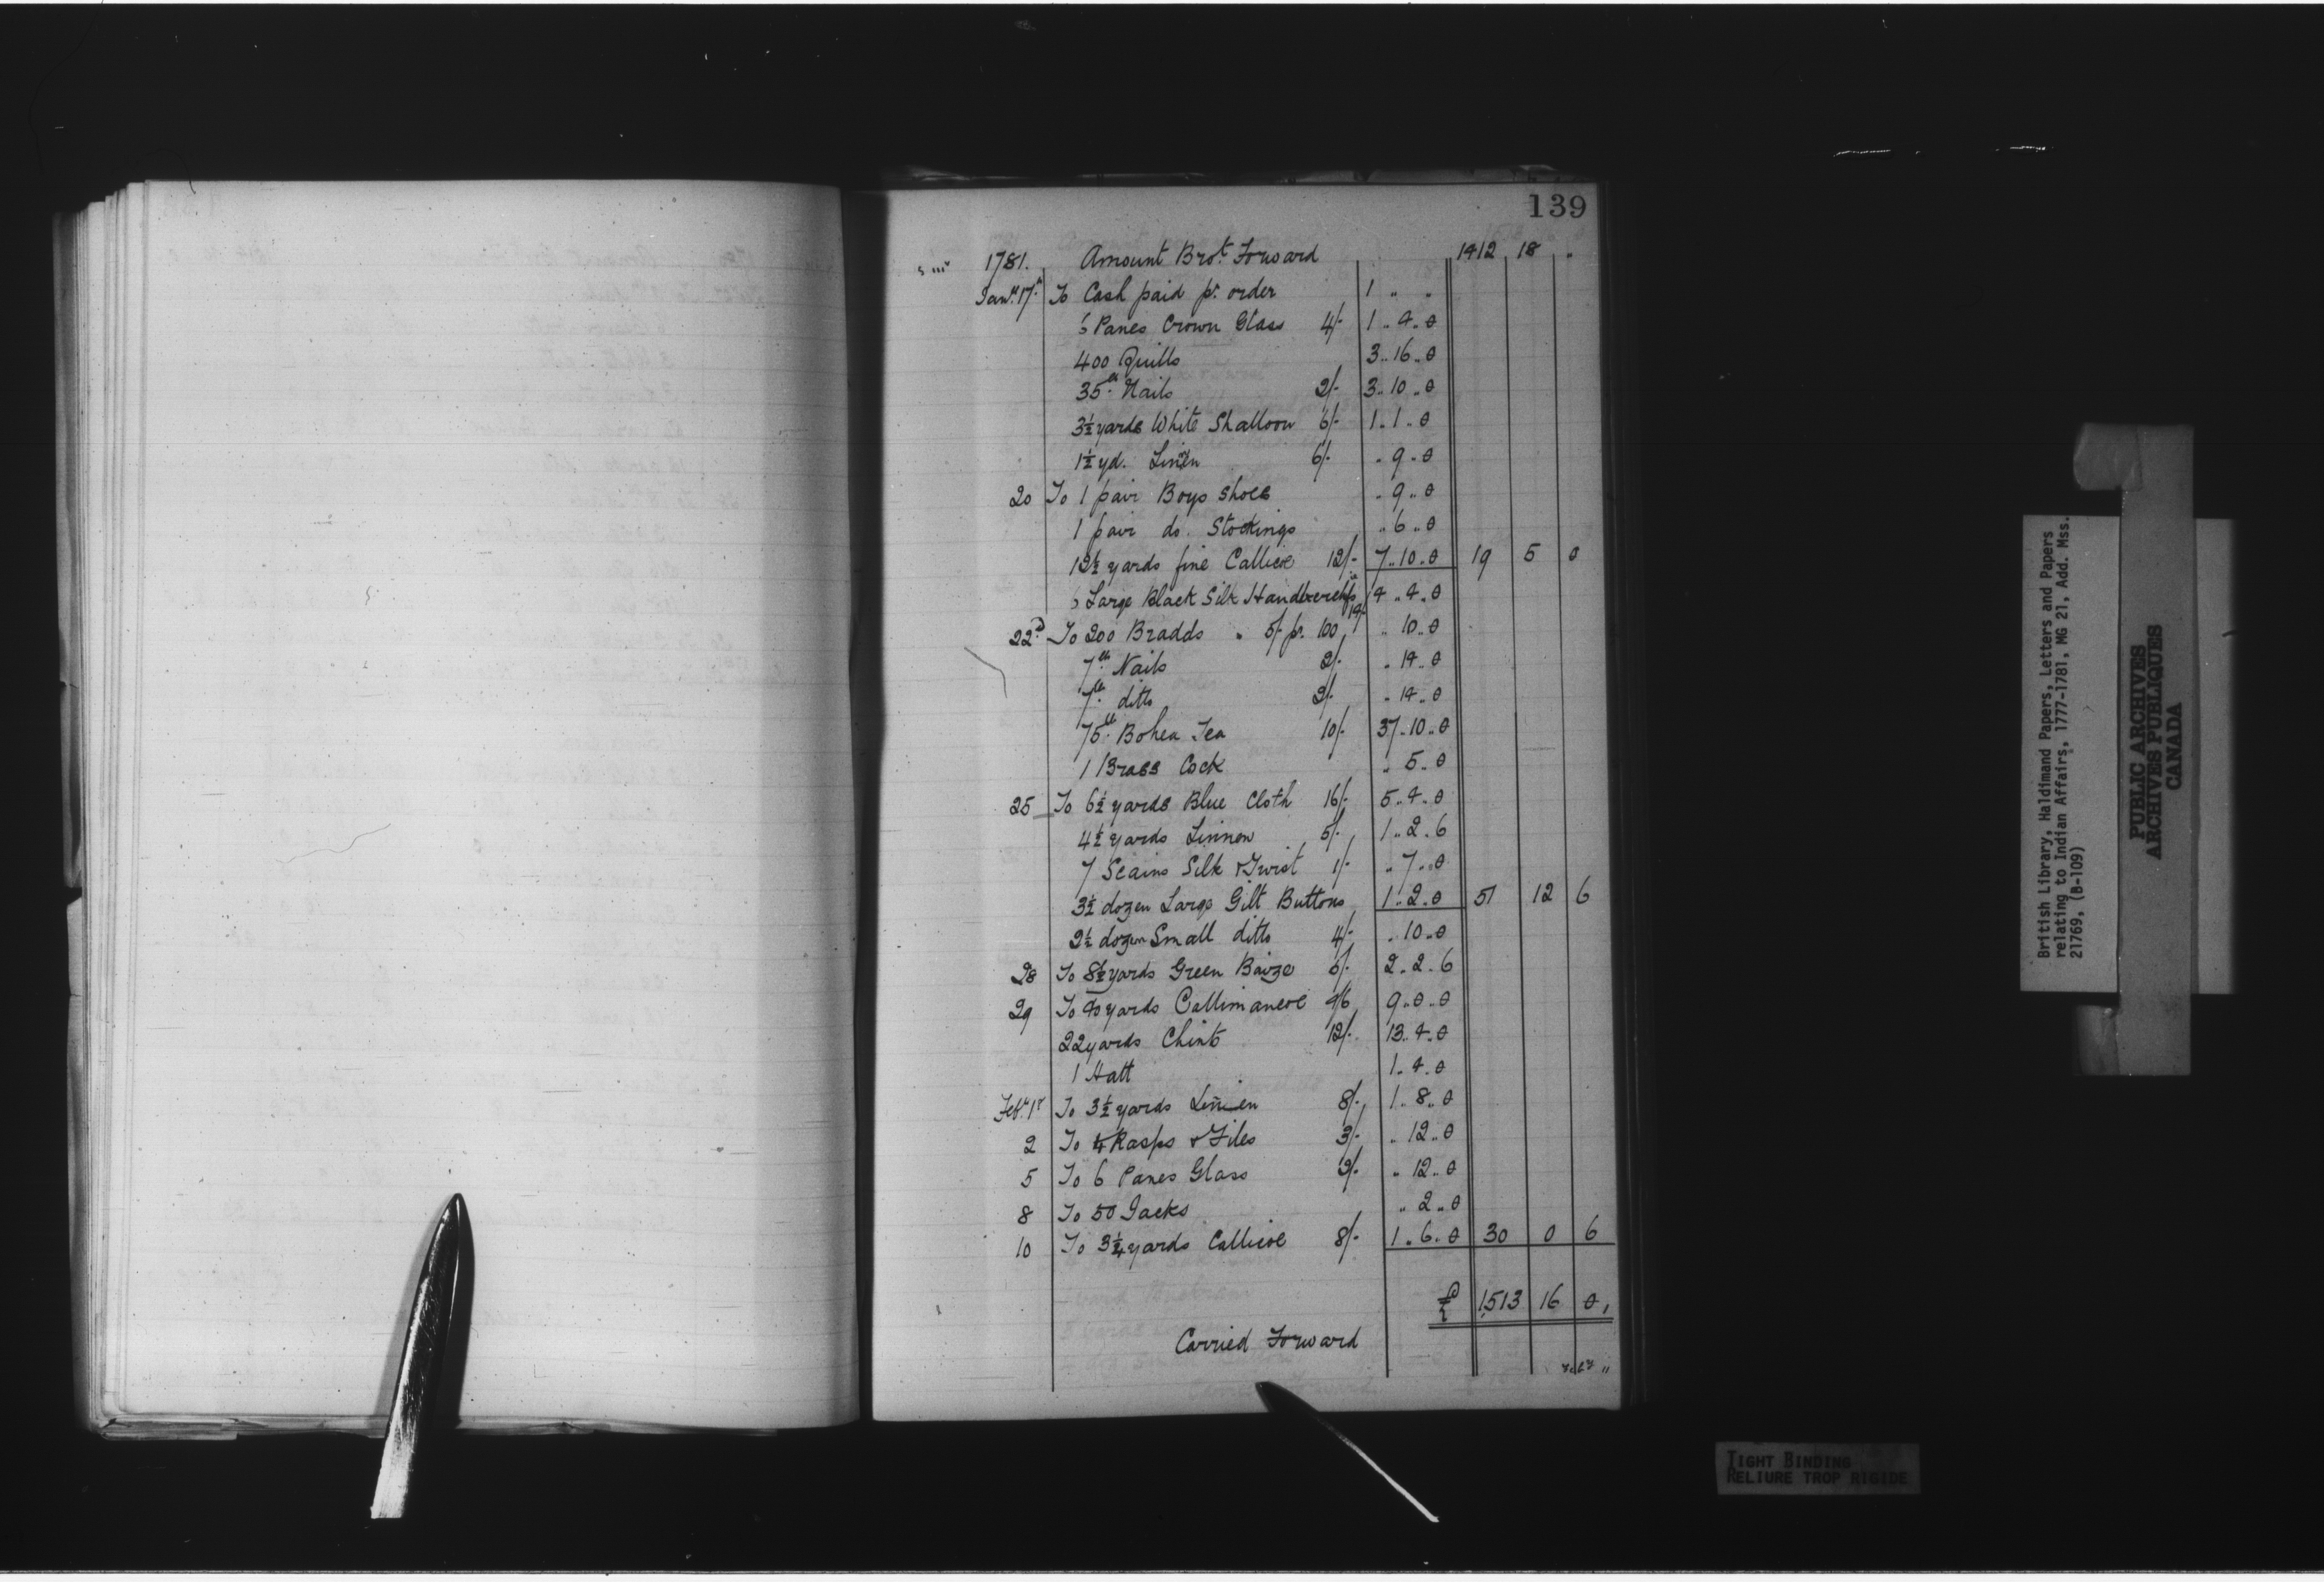 139
1781. Amount Bro.t Forward 1412 18 "
Jan.y 17.th To Cash paid p.r order 1 " "
6 Panes Crown Glass 4/- 1 .. 4 .. 0
400 Quills 3 .. 16 .. 0
35.lb Nails 2/- 3 .. 10 .. 0
3½ yards White Shalloon 6/- 1 .. 1 .. 0
1½ yd. Linen 6/- " 9 .. 0
20 To 1 pair Boys shoes " 9 .. 0
1 pair do. Stockings " 6 .. 0
12½ yards fine Callicoe 12/- 7 .. 10 .. 0 19 5 0
6 Large Black Silk Handkerchfs 14/- 4 .. 4 .. 0
22.d To 200 Bradds " 5/- p.r 100 " 10 .. 0
7.lb Nails 2/- " 14 .. 0
7.lb ditto 2/- " 14 .. 0
75.lb Bohea Tea 10/- 37 .. 10 .. 0
1 Brass Cock " 5 .. 0
25 To 6½ yards Blue Cloth 16/- 5 .. 4 .. 0
4½ yards Linnen 5/- 1 .. 2 .. 6
7 Scains Silk & Twist 1/- " 7 .. 0
3½ dozen Large Gilt Buttons 1 .. 2 .. 0 51 12 6
2½ dozen Small ditto 4/- " 10 .. 0
28 To 8½ yards Green Baize 5/- 2 .. 2 .. 6
29 To 40 yards Callimancoe 4/6 9 .. 0 .. 0
22 yards Chints 12/- 13 .. 4 .. 0
1 Hatt 1 .. 4 .. 0
Feb.y 1st To 3½ yards Linnen 8/- 1 .. 8 .. 0
2 To 4 Rasps & Files 3/- " 12 .. 0
5 To 6 Panes Glass 2/- " 12 .. 0
8 To 50 Tacks " 2 .. 0
10 To 3¼ yards Callicoe 8/- 1 .. 6 .. 0 30 0 6
£ 1,513 16 0
Carried Forward
British Library, Haldimand Papers, Letters and Papers
relating to Indian Affairs, 1777-1781, MG 21, Add. Mss.
21769, (B-109)
PUBLIC ARCHIVES
ARCHIVES PUBLIQUES
CANADA
TIGHT BINDING
RELIURE TROP RIGIDE